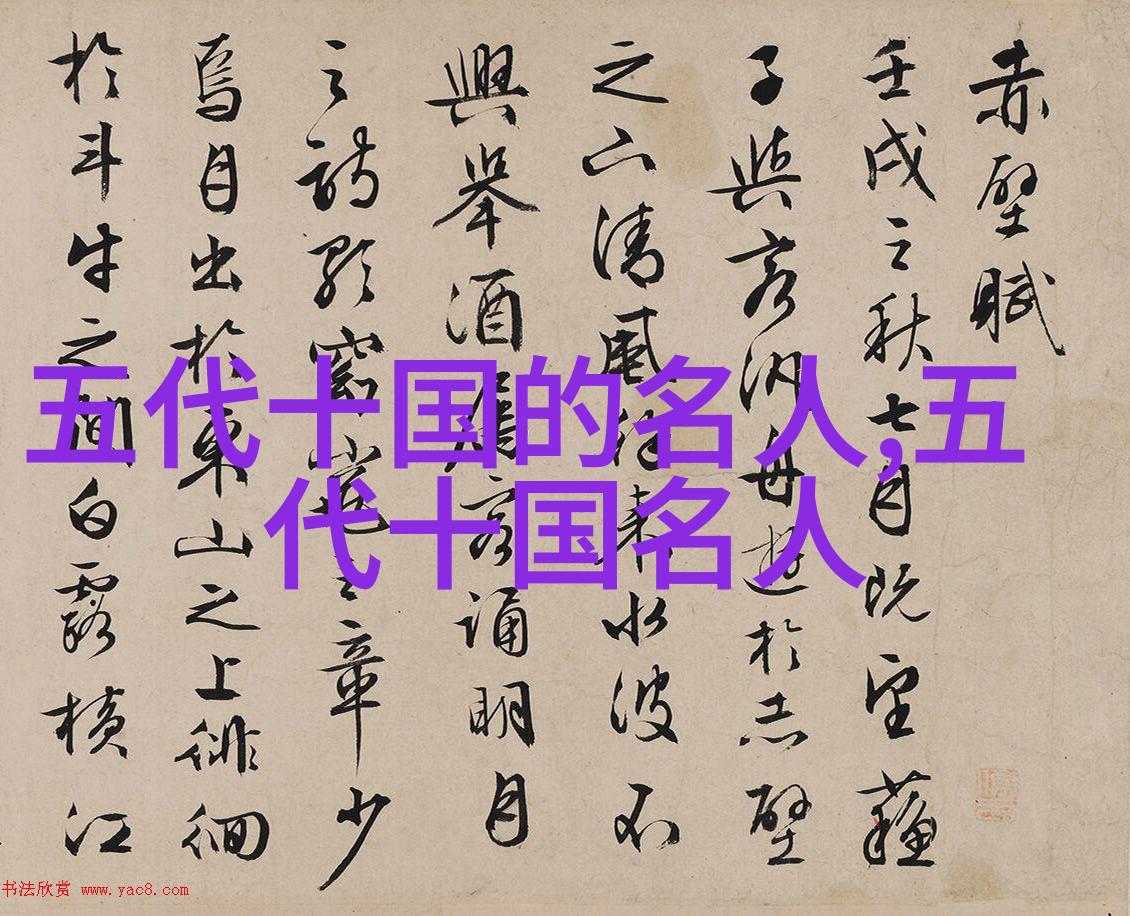 赤壁賦
壬戌之秋七月既望蘇
子與客汎舟遊於赤壁
之下清風徐來水波不
興舉酒屬客誦明月
之詩歌窈窕之章少
焉月出於東山之上徘徊
於斗牛之間白露橫江
五代十国的名人,五
代十国名人
书法欣赏 www.yac8.com